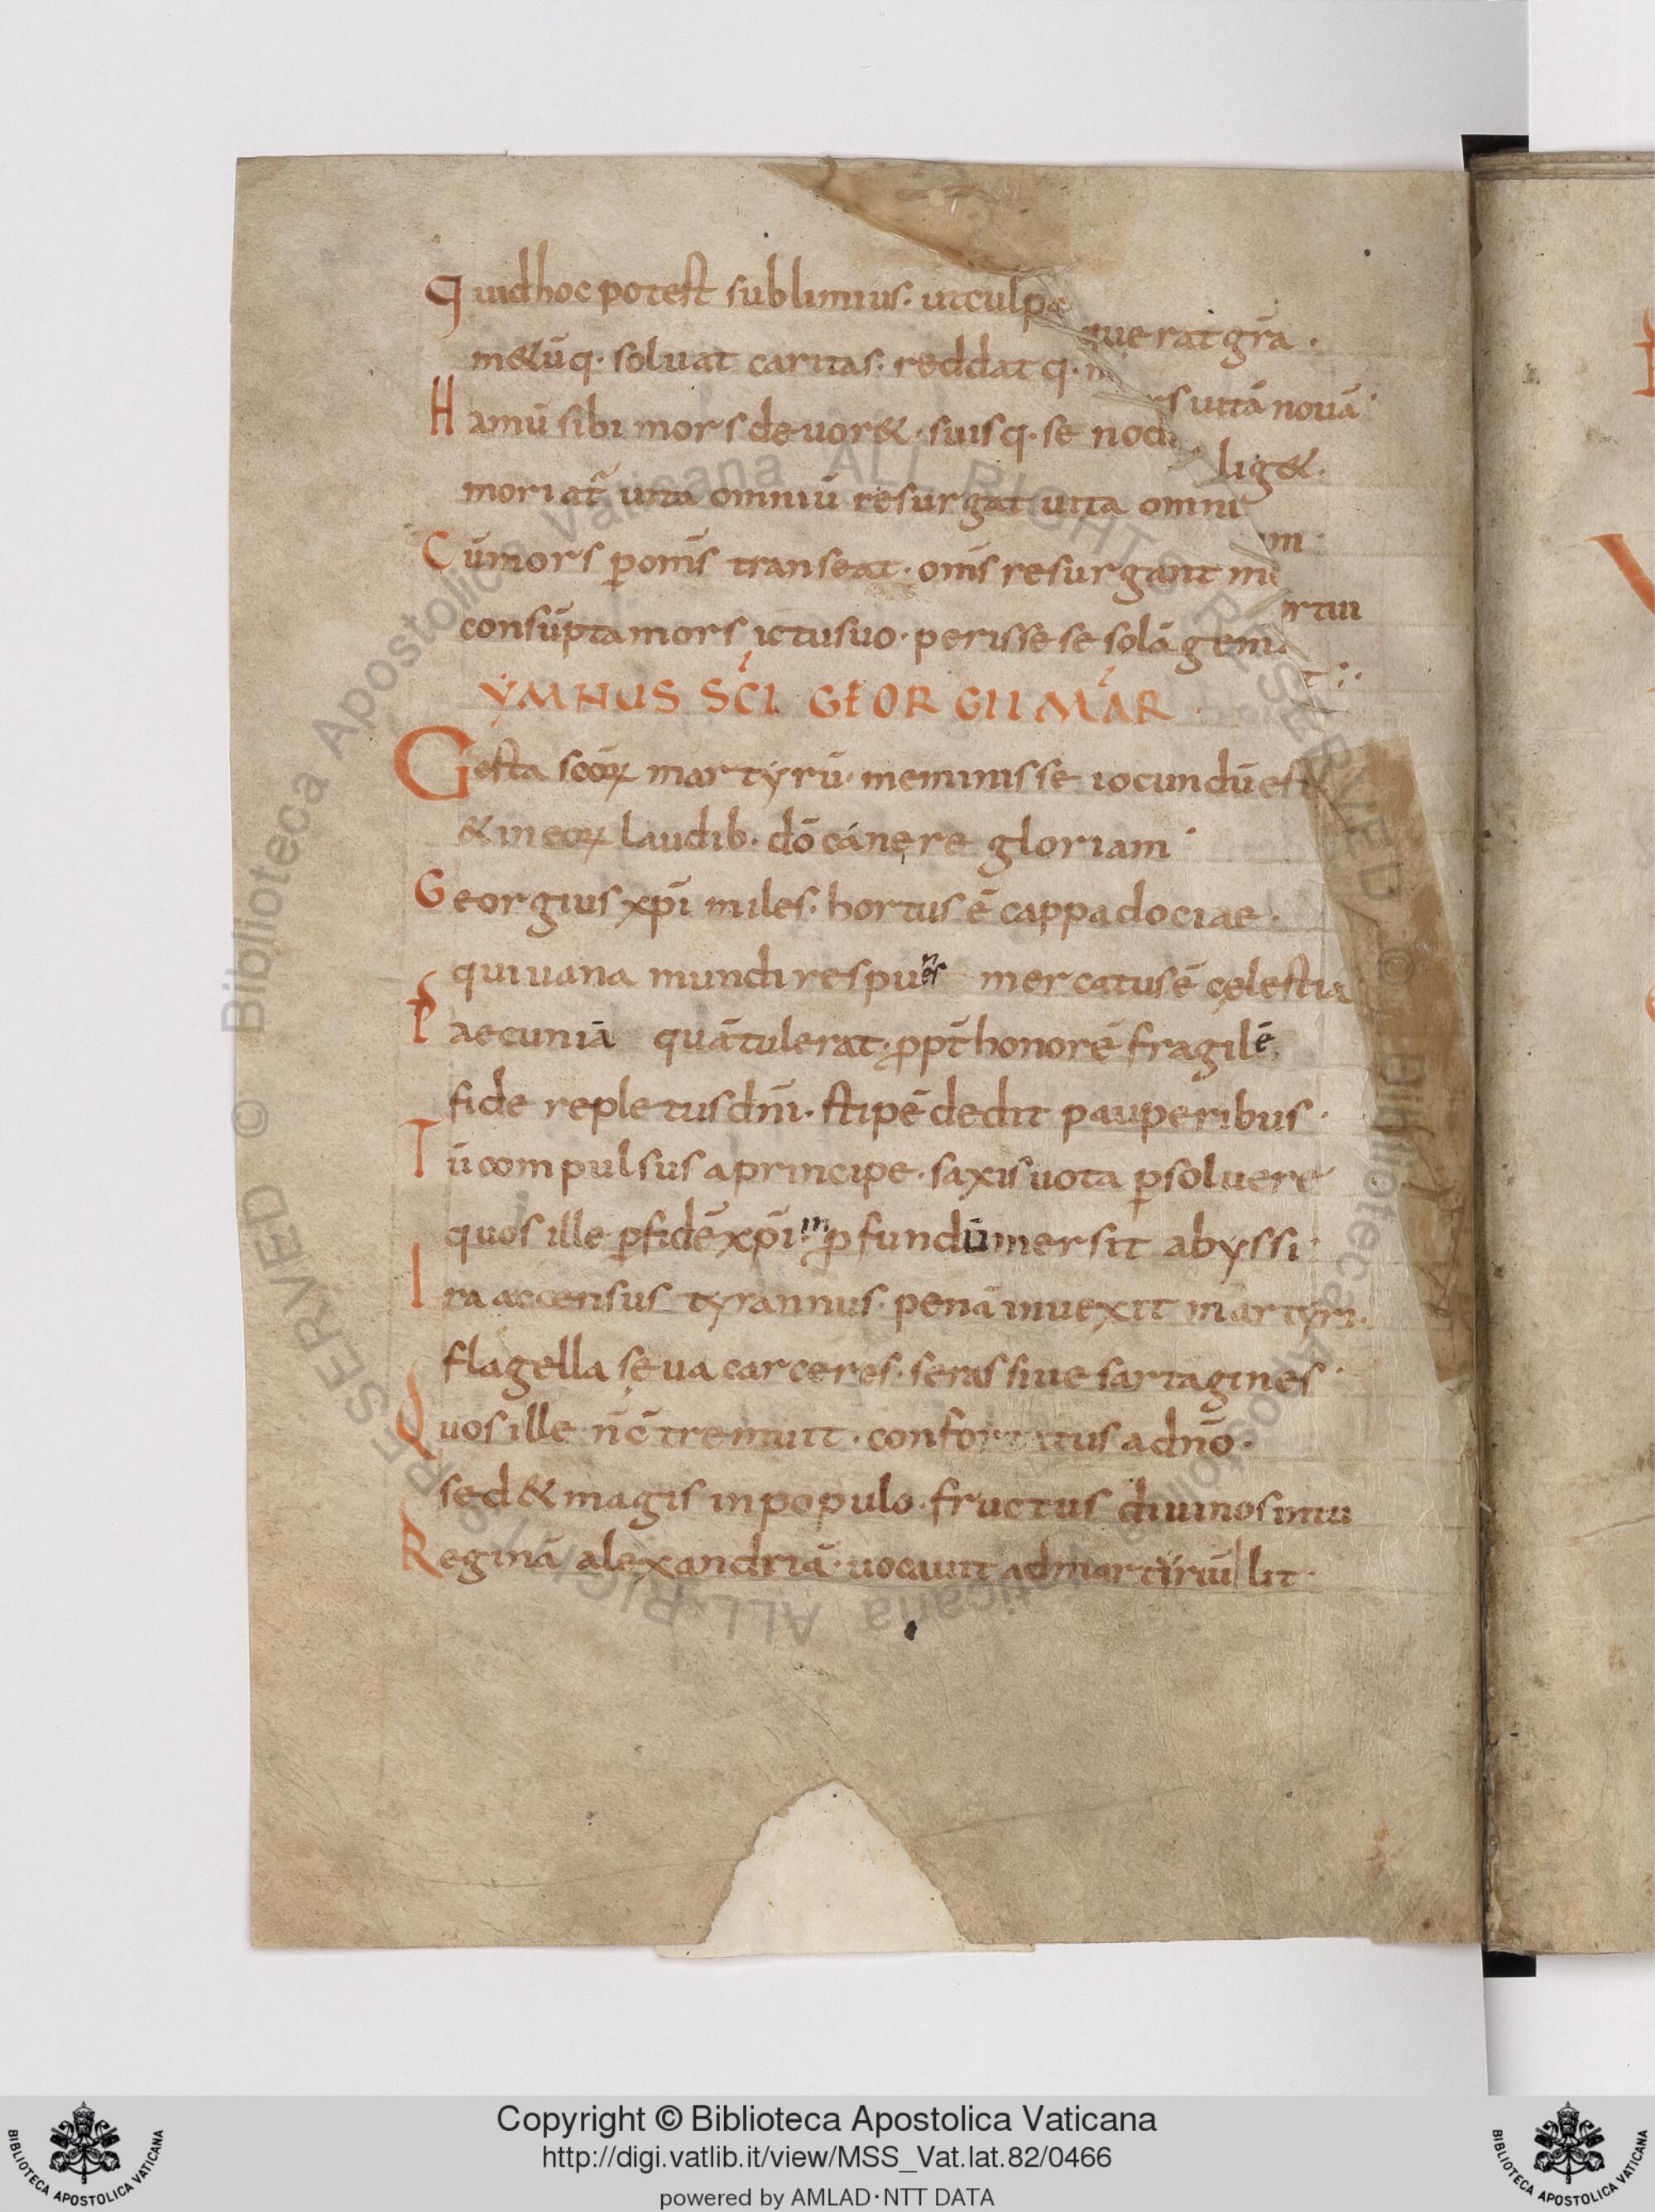 Quid hoc potest sublimius· ut culpa querat gr̄a·
m&ūq· soluat caritas· reddatq· mors uitā nouā·
Hamū sibi mors deuor&· suisq· se nodis lig&·
moriat̄ uita omniū resurgat uita omnium·
Cū mors p̄ om̄s transeat· om̄s resurgant mortui
consūpta mors ictu suo· perisse se solā gemat·
YMNUS SC̄I GEORGII MAR
Gesta sc̄oꝝ martyrū· meminisse iocundū est
& in eoꝝ laudib· dō canere gloriam·
Georgius xp̄i miles· hortus ē cappadociae·
qui uana mundi respuens mercatus ē cęlestia
Paecuniā quā tulerat· ꝓpt̄ honorē fragilē
fide repletus dn̄i· stipē dedit pauperibus·
Tū compulsus a principe· saxis uota ꝑsoluere
quos ille ꝑ fidē xp̄i· in ꝓfundū mersit abyssi·
Ira accensus tyrannus· penā inuexit martyri·
flagella sęua carceres· senas siue sartagines·
Quos ille n̄c̄ tremuit· confortatus a dn̄o·
sed & magis in populo· fructus diuinos intu
Reginā alexandriā· uocauit ad martyriū lit·
Copyright © Biblioteca Apostolica Vaticana
http://digi.vatlib.it/view/MSS_Vat.lat.82/0466
powered by AMLAD·NTT DATA
BIBLIOTECA APOSTOLICA VATICANA
BIBLIOTECA APOSTOLICA VATICANA
Biblioteca Apostolica Vaticana ALL RIGHTS RESERVED © Biblioteca Apostolica Vaticana ALL RIGHTS RESERVED ©